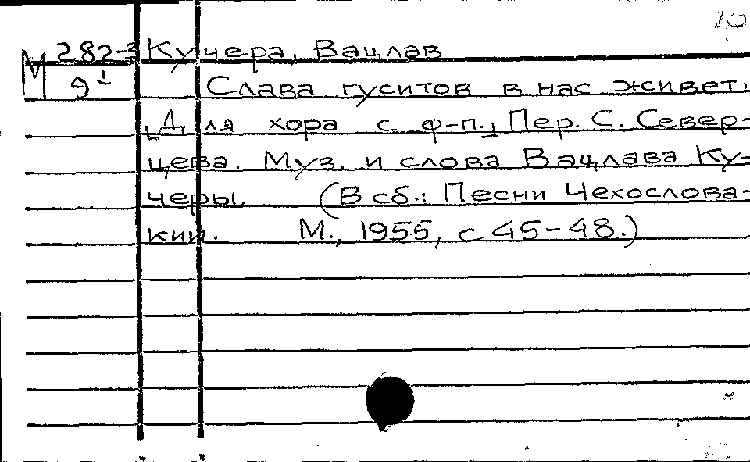 М 282-3 Кучера, Вацлав
9¹ Слава гуситов в нас живет.
[Для хора с ф-п.] Пер. С. Север-
цева. Муз. и слова Вацлава Ку-
черы. (В сб.: Песни Чехослова-
кии. М., 1955, с 45-48.)